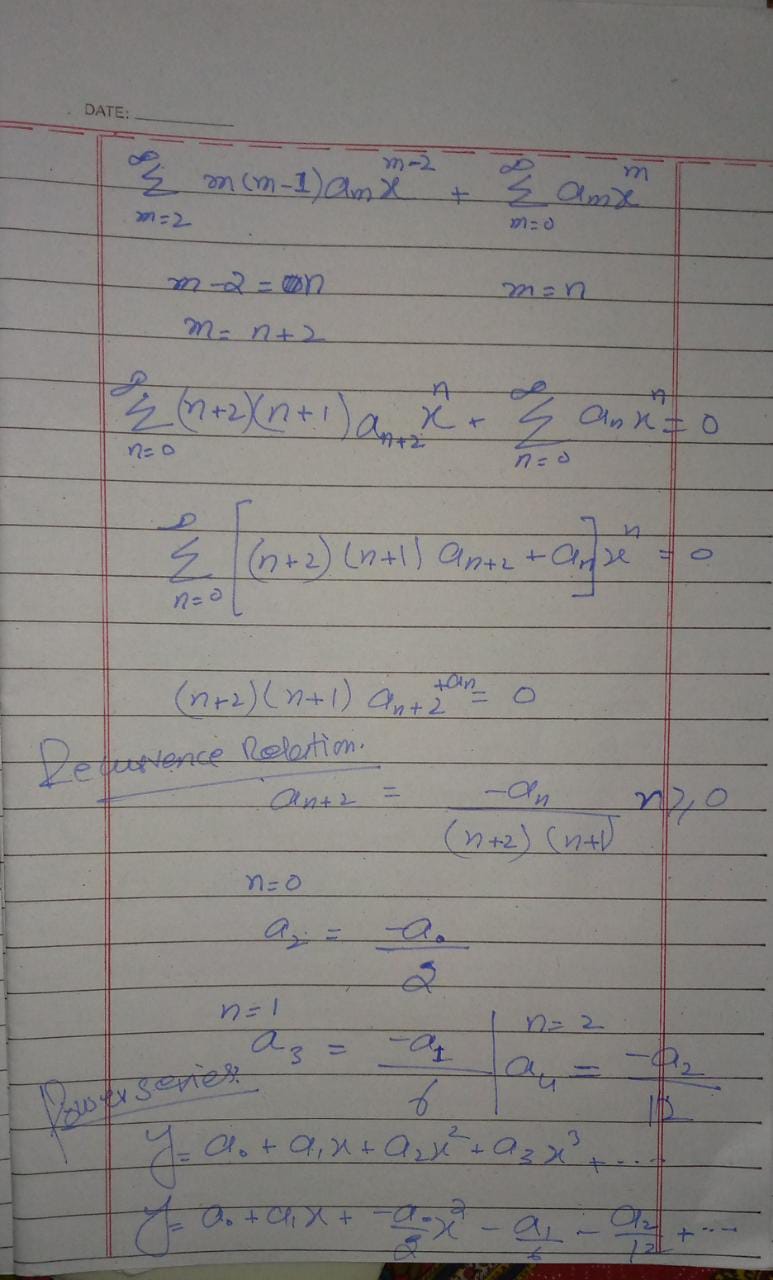 DATE:
∞ Σ m=2 m(m-1)aₘx^(m-2) + ∞ Σ m=0 aₘx^m
m-2 = n    m=n
m= n+2
∞ Σ n=0 (n+2)(n+1) aₙ₊₂ x^n + ∞ Σ n=0 aₙ x^n = 0
∞ Σ n=0 [(n+2) (n+1) aₙ₊₂ + aₙ] x^n = 0
(n+2)(n+1) aₙ₊₂ +aₙ = 0
Recurrence Relation.
aₙ₊₂ = -aₙ / (n+2) (n+1)    n≥0
n=0
a₂ = -a₀ / 2
n=1    n=2
a₃ = -a₁ / 6 | a₄ = -a₂ / 12
Power series.
y= a₀ + a₁x + a₂x² + a₃x³ + ....
y= a₀ + a₁x + -a₀/2 x² - a₁/6 - a₂/12 + ....